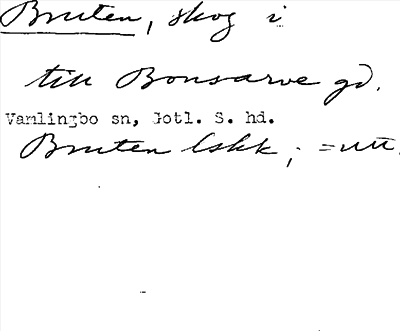 Bruten, skog i
till Bonsarve gd.
Vamlingbo sn, Gotl. S. hd.
Bruten lskk; = utt.